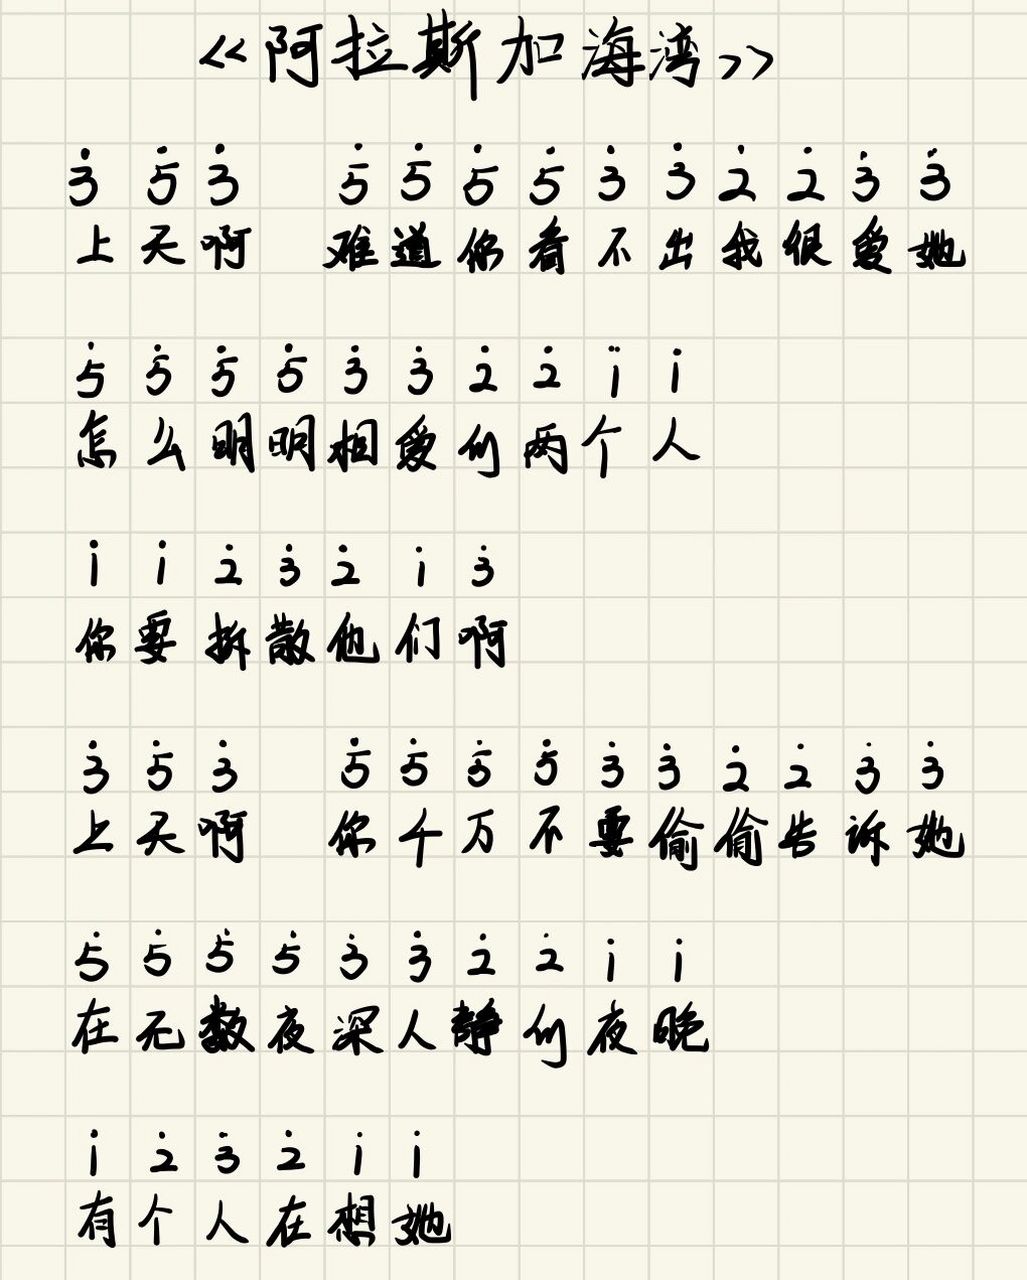 《阿拉斯加海湾》
3̇ 5̇ 3̇ 5̇ 5̇ 5̇ 5̇ 3̇ 3̇ 2̇ 2̇ 3̇ 3̇
上天啊 难道你看不出我很爱她
5̇ 5̇ 5̇ 5̇ 3̇ 3̇ 2̇ 2̇ 1̇ 1̇
怎么明明相爱的两个人
1̇ 1̇ 2̇ 3̇ 2̇ 1̇ 3̇
你要拆散他们啊
3̇ 5̇ 3̇ 5̇ 5̇ 5̇ 5̇ 3̇ 3̇ 2̇ 2̇ 3̇ 3̇
上天啊 你千万不要偷偷告诉她
5̇ 5̇ 5̇ 5̇ 3̇ 3̇ 2̇ 2̇ 1̇ 1̇
在无数夜深人静的夜晚
1̇ 2̇ 3̇ 2̇ 1̇ 1̇
有个人在想她